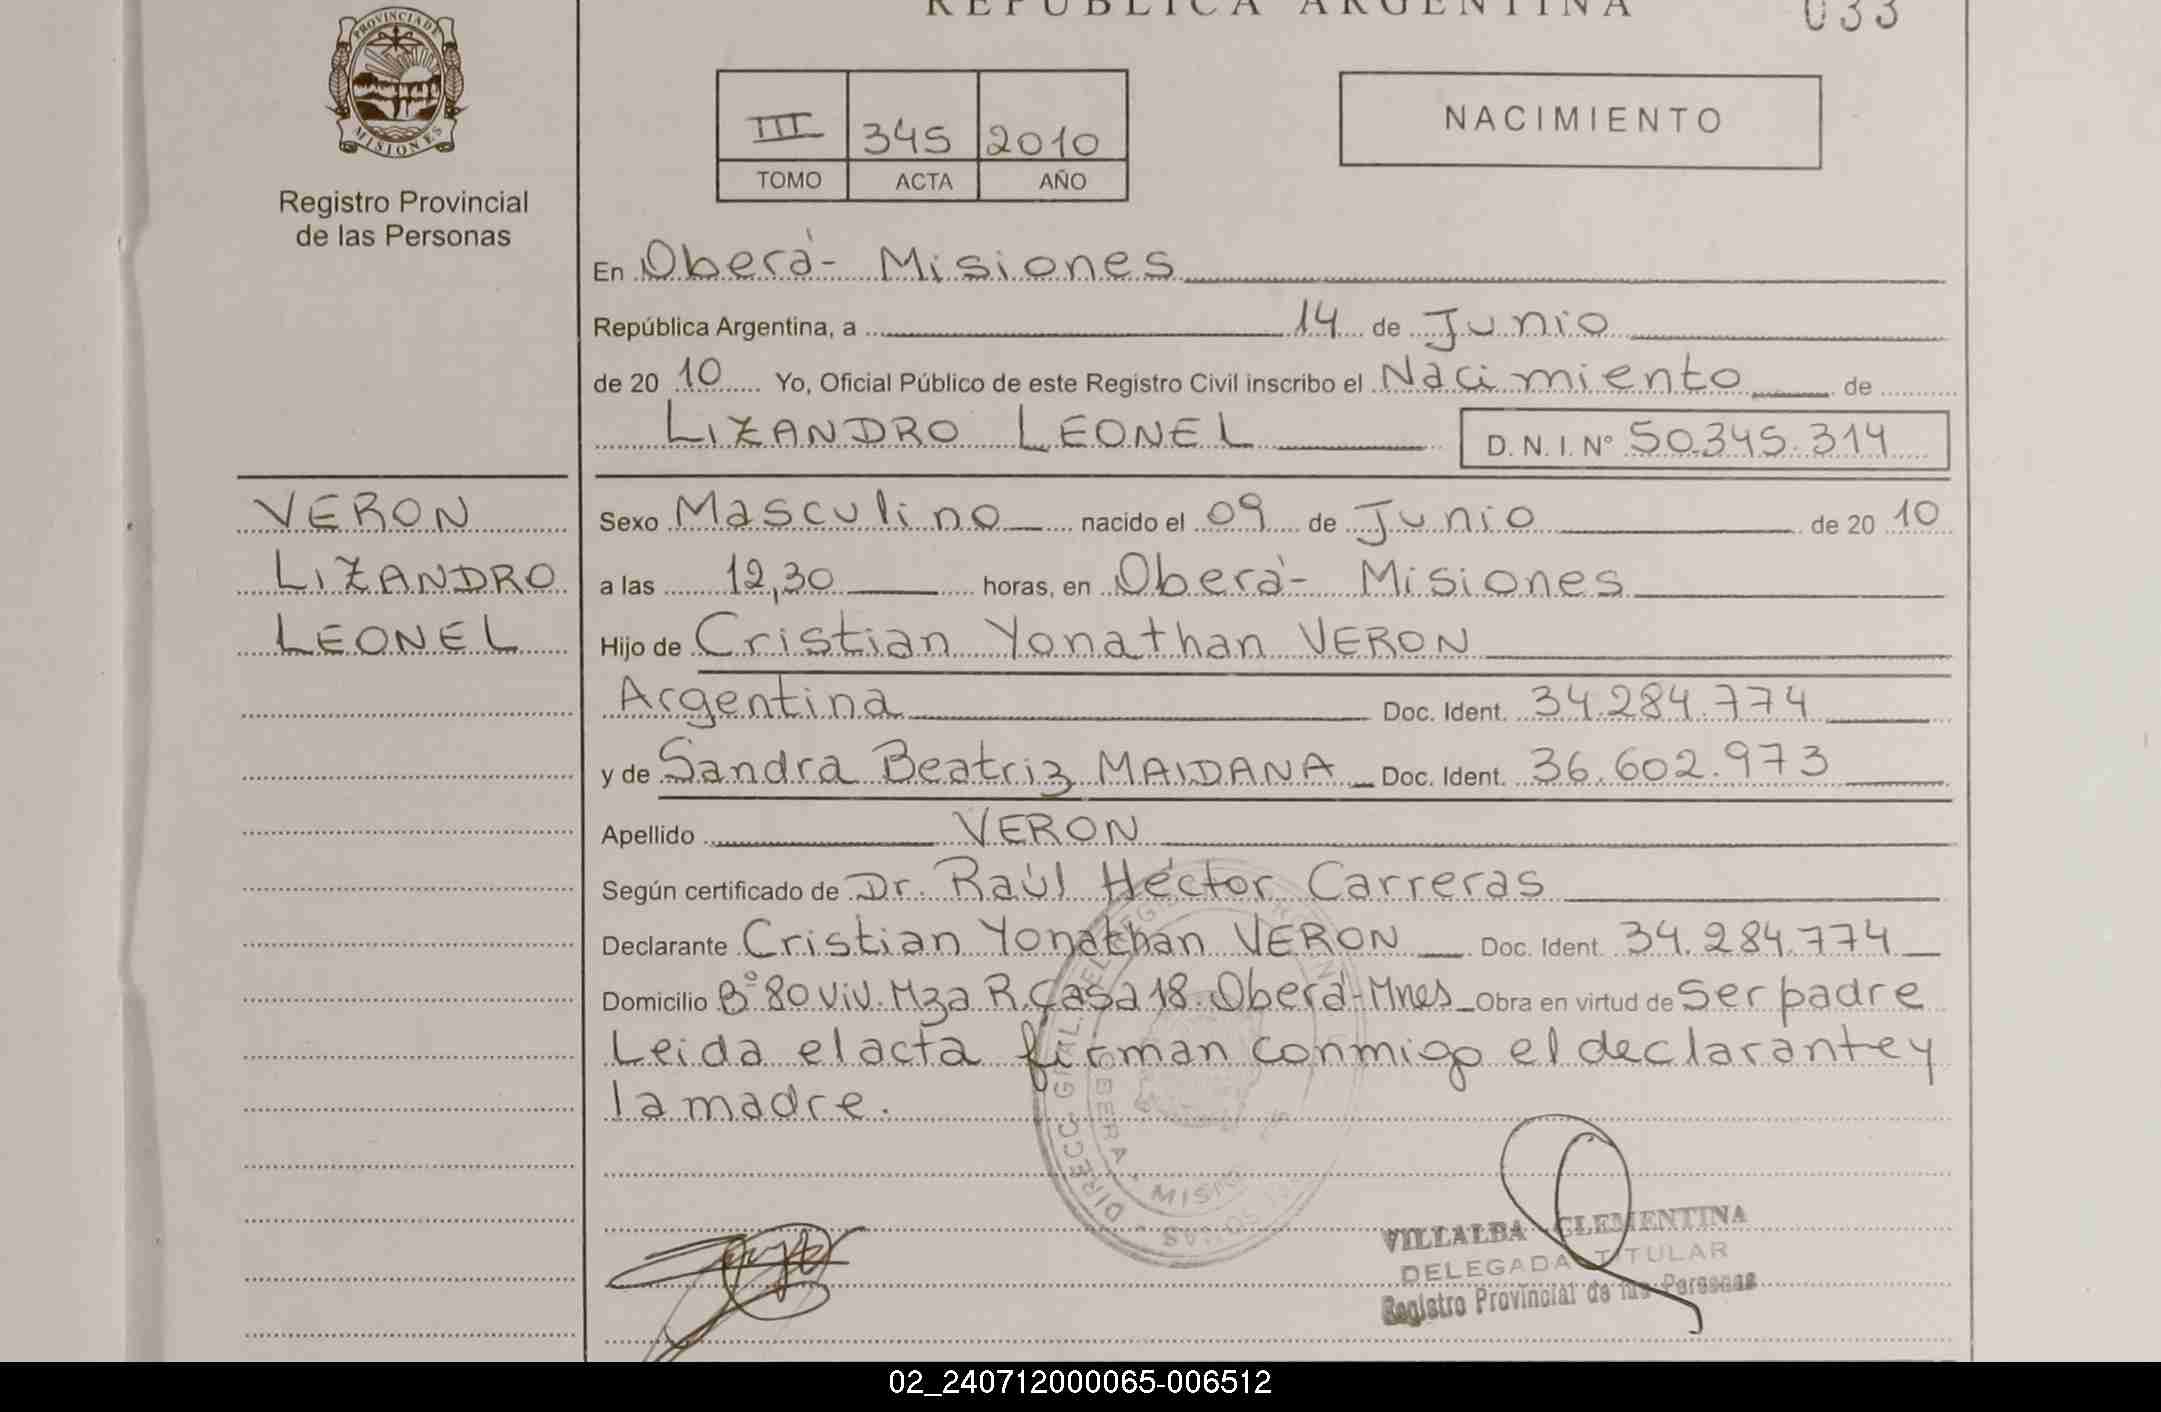 REPUBLICA ARGENTINA
033
PROVINCIA DE
MISIONES
Registro Provincial
de las Personas
III 345 2010
TOMO ACTA AÑO
NACIMIENTO
En Oberá- Misiones
República Argentina, a 14 de Junio
de 20 10 Yo, Oficial Público de este Registro Civil inscribo el Nacimiento de
LIZANDRO LEONEL D. N. I. Nº 50.345.314
VERON
LIZANDRO
LEONEL
Sexo Masculino nacido el 09 de Junio de 20 10
a las 12,30 horas, en Oberá- Misiones
Hijo de Cristian Yonathan VERON
Argentina Doc. Ident. 34.284.774
y de Sandra Beatriz MAIDANA Doc. Ident. 36.602.973
Apellido VERON
Según certificado de Dr. Raúl Héctor Carreras
Declarante Cristian Yonathan VERON Doc. Ident. 34.284.774
Domicilio Bº 80 viv. Mza R. Casa 18. Oberá-Mnes Obra en virtud de Ser padre
Leida el acta firman conmigo el declarante y
la madre.
VILLALBA CLEMENTINA
DELEGADA TITULAR
Registro Provincial de las Personas
02_240712000065-006512